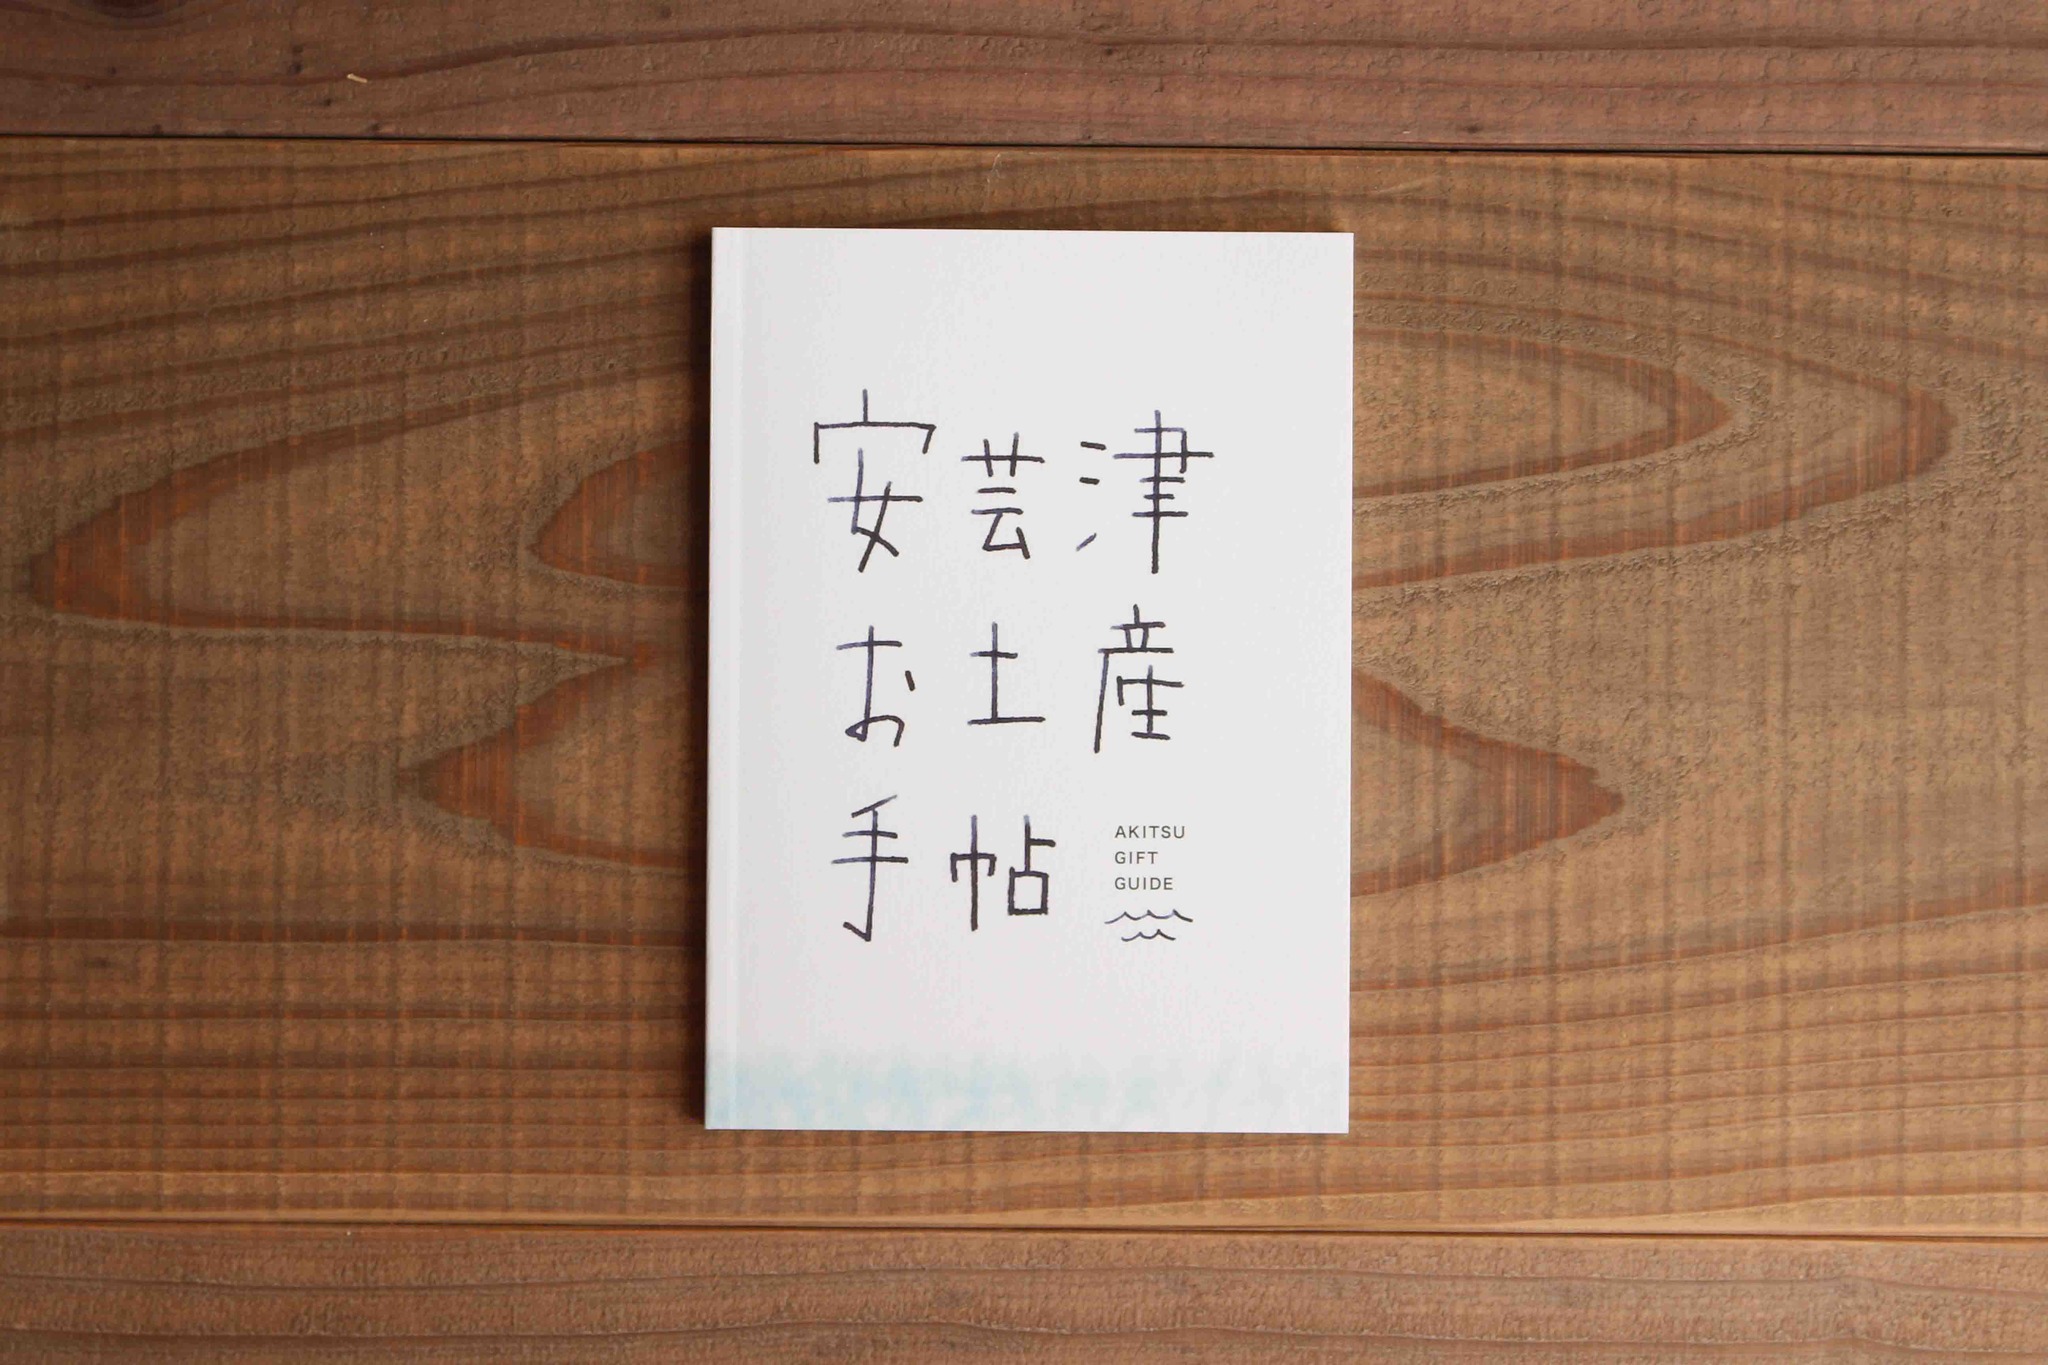 安芸津
お土産
手帖
AKITSU
GIFT
GUIDE